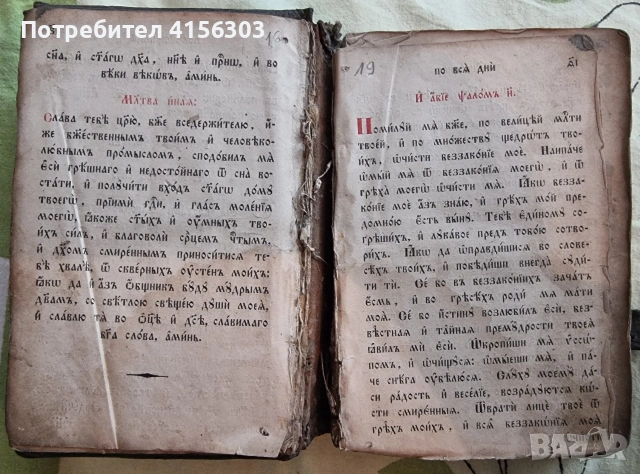 Потребител 4156303
16
сн҃а, и҆ ст҃а́гѡ дх҃а, нн҃ѣ и҆ при́снѡ, и҆ во
вѣ́ки вѣкѡ́въ, а҆ми́нь.
Мл҃тва и҆на́ѧ:
Сла́ва тебѣ̀ цр҃ю̀, бж҃е вседержи́телю, ꙗ҆́-
же бж҃е́ственнымъ твои́мъ и҆ человѣко-
лю́бнымъ про́мысломъ, сподо́билъ мѧ̀
є҆сѝ грѣ́шнаго и҆ недосто́йнаго ѿ сна̀ во-
ста́ти, и҆ получи́ти вхо́дъ ст҃а́гѡ до́мꙋ
твоегѡ̀, прїимѝ гдⷭ҇и, и҆ гла́съ моле́нїѧ
моегѡ̀, ꙗ҆́коже ст҃ы́хъ и҆ ᲂу҆́мныхъ тво-
и́хъ си́лъ, и҆ благоволѝ срⷣцемъ чⷭ҇тымъ,
и҆ дх҃омъ смире́ннымъ приноси́тисѧ те-
бѣ̀ хвалѣ̀, ѿ скве́рныхъ ᲂу҆сте́нъ мои́хъ:
ꙗ҆́кѡ да и҆ а҆́зъ ѻ҆́бщникъ бꙋ́дꙋ мꙋ́дрымъ
дв҃амъ, со свѣ́тлою свѣще́ю дꙋшѝ моеѧ̀,
и҆ сла́влю тѧ̀ во ѻ҆ц҃ѣ̀ и҆ дс҃ѣ, сла́вимаго
бг҃а сло́ва, а҆ми́нь.
19
по всѧ̑ дни̑
И҆ а҆́бїе ѱало́мъ н҃.
Поми́лꙋй мѧ̀ бж҃е, по вели́цѣй мл҃ти
твое́й, и҆ по мно́жествꙋ щедро́тъ тво-
и́хъ, ѡ҆чи́сти беззако́нїе моѐ. Наипа́че
ѡ҆мы́й мѧ̀ ѿ беззако́нїѧ моегѡ̀, и҆ ѿ
грѣха̀ моегѡ̀ ѡ҆чи́сти мѧ̀. Ꙗ҆́кѡ безза-
ко́нїе моѐ а҆́зъ зна́ю, и҆ грѣ́хъ мо́й пре-
до мно́ю є҆́сть вы́нꙋ. Тебѣ̀ є҆ди́номꙋ со-
грѣши́хъ, и҆ лꙋка́вое пред̾ тобо́ю сотво-
ри́хъ. Ꙗ҆́кѡ да ѡ҆правди́шисѧ во слове-
сѣ́хъ твои́хъ, и҆ побѣди́ши внегда̀ сꙋди́-
ти тѝ. Се́ бо въ беззако́нїихъ зача́тъ
є҆́смь, и҆ во грѣсѣ́хъ родѝ мѧ̀ ма́ти
моѧ̀. Се́ бо и҆́стинꙋ возлюби́лъ є҆сѝ, без-
вѣ́стнаѧ и҆ та̑йнаѧ премꙋ́дрости твоеѧ̀
ꙗ҆ви́лъ мѝ є҆сѝ. Ѡ҆кропи́ши мѧ̀ ѵ҆ссѡ́-
помъ, и҆ ѡ҆чи́щꙋсѧ: ѡ҆мы́еши мѧ̀, и҆ па́-
че снѣ́га ᲂу҆бѣлю́сѧ. Слꙋ́хꙋ моемꙋ̀ да́-
си ра́дость и҆ весе́лїе, возра́дꙋютсѧ кѡ́-
сти смире́нныѧ. Ѿвратѝ лицѐ твоѐ ѿ
грѣ́хъ мои́хъ, и҆ всѧ̑ беззакѡ́нїѧ моѧ̑
BAZAR